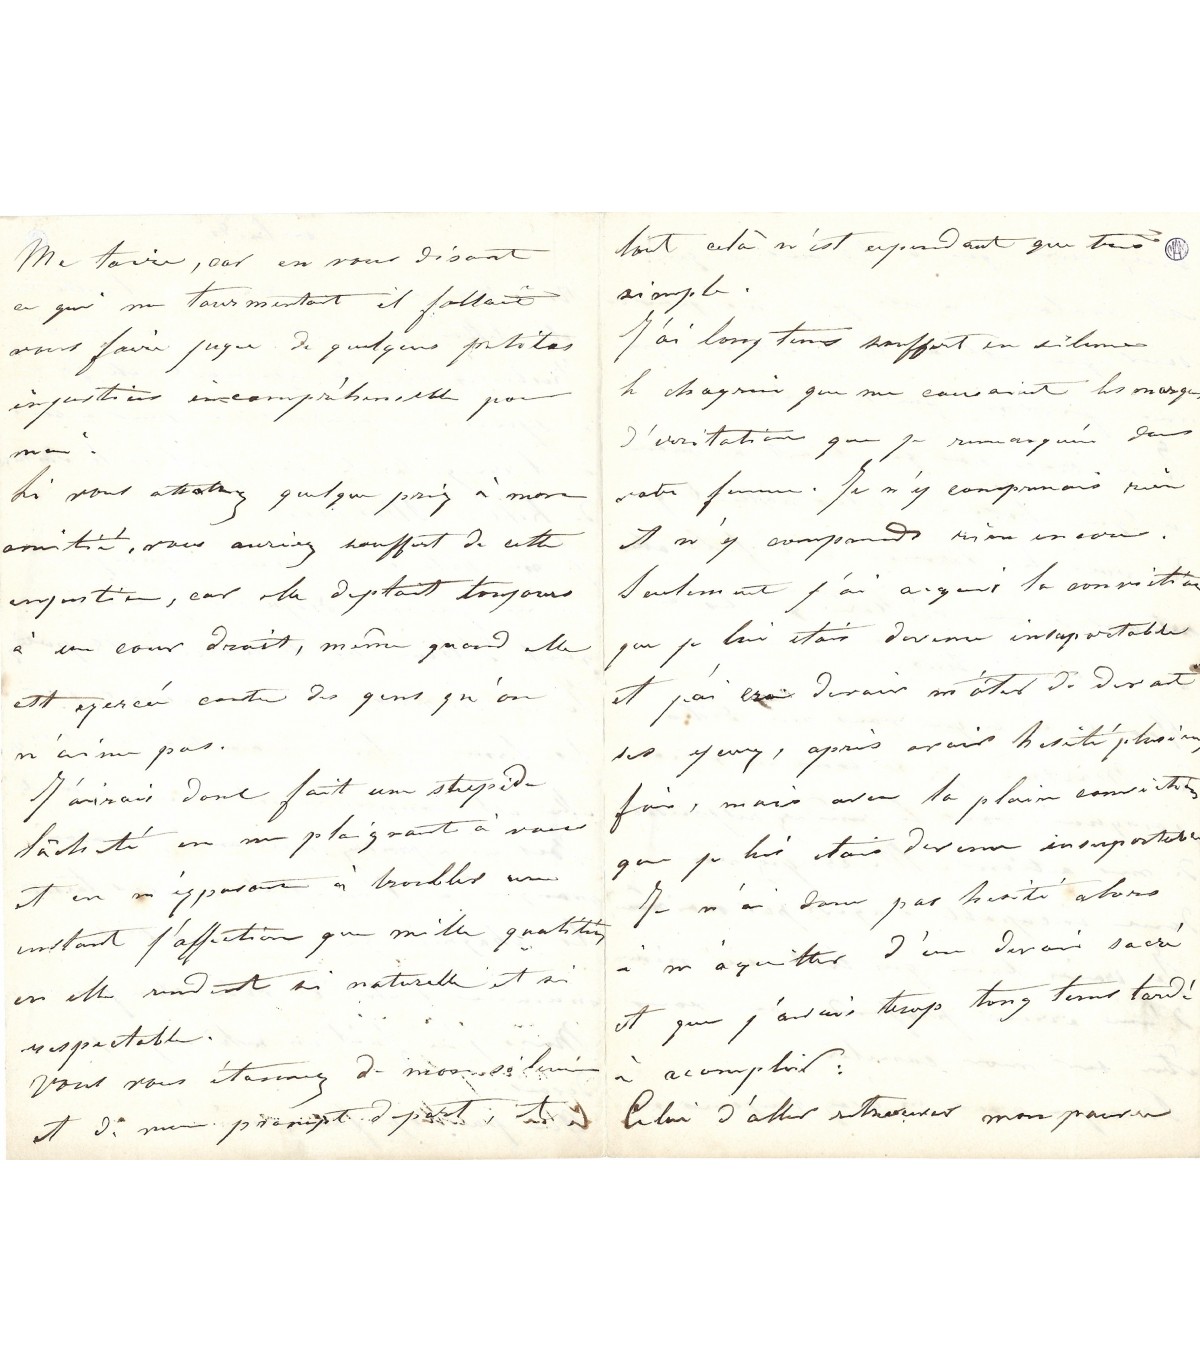 Me taire, car en vous disant
ce qui me tourmentait il fallait
vous faire juger de quelques petites
injustices incompréhensible pour
moi.
Si vous attachez quelque prix à mon
amitié, vous auriez souffert de cette
injustice, car elle deplait toujours
à un cœur droit, même quand elle
est exercée contre des gens qu'on
n'aime pas.
J'aurais donc fait une stupide
lâcheté en me plaignant à vous
et en m'exposant à troubler un
instant l'affection que mille qualités
en elle rendent si naturelle et si
respectable.
Vous vous étonnez de mon silence
et de mon prompt depart, et
tout celà n'est cependant que très
simple.
J'ai longtems souffert en silence
le chagrin que me causaient les marques
d'irritation que je remarquais dans
votre femme. Je n'y comprenais rien
et n'y comprends rien encore.
Seulement j'ai acquis la conviction
que je lui étais devenu insuportable
et j'ai cru devoir m'ôter de devant
ses yeux, après avoir hesité plusieurs
fois, mais avec la pleine conviction
que je lui étais devenu insuportable
Je n'ai donc pas hesité alors
à m'aquitter d'un devoir sacré
et que j'avais trop long tems tardé
à acomplir:
Celui d'aller retrouver mon pauvre